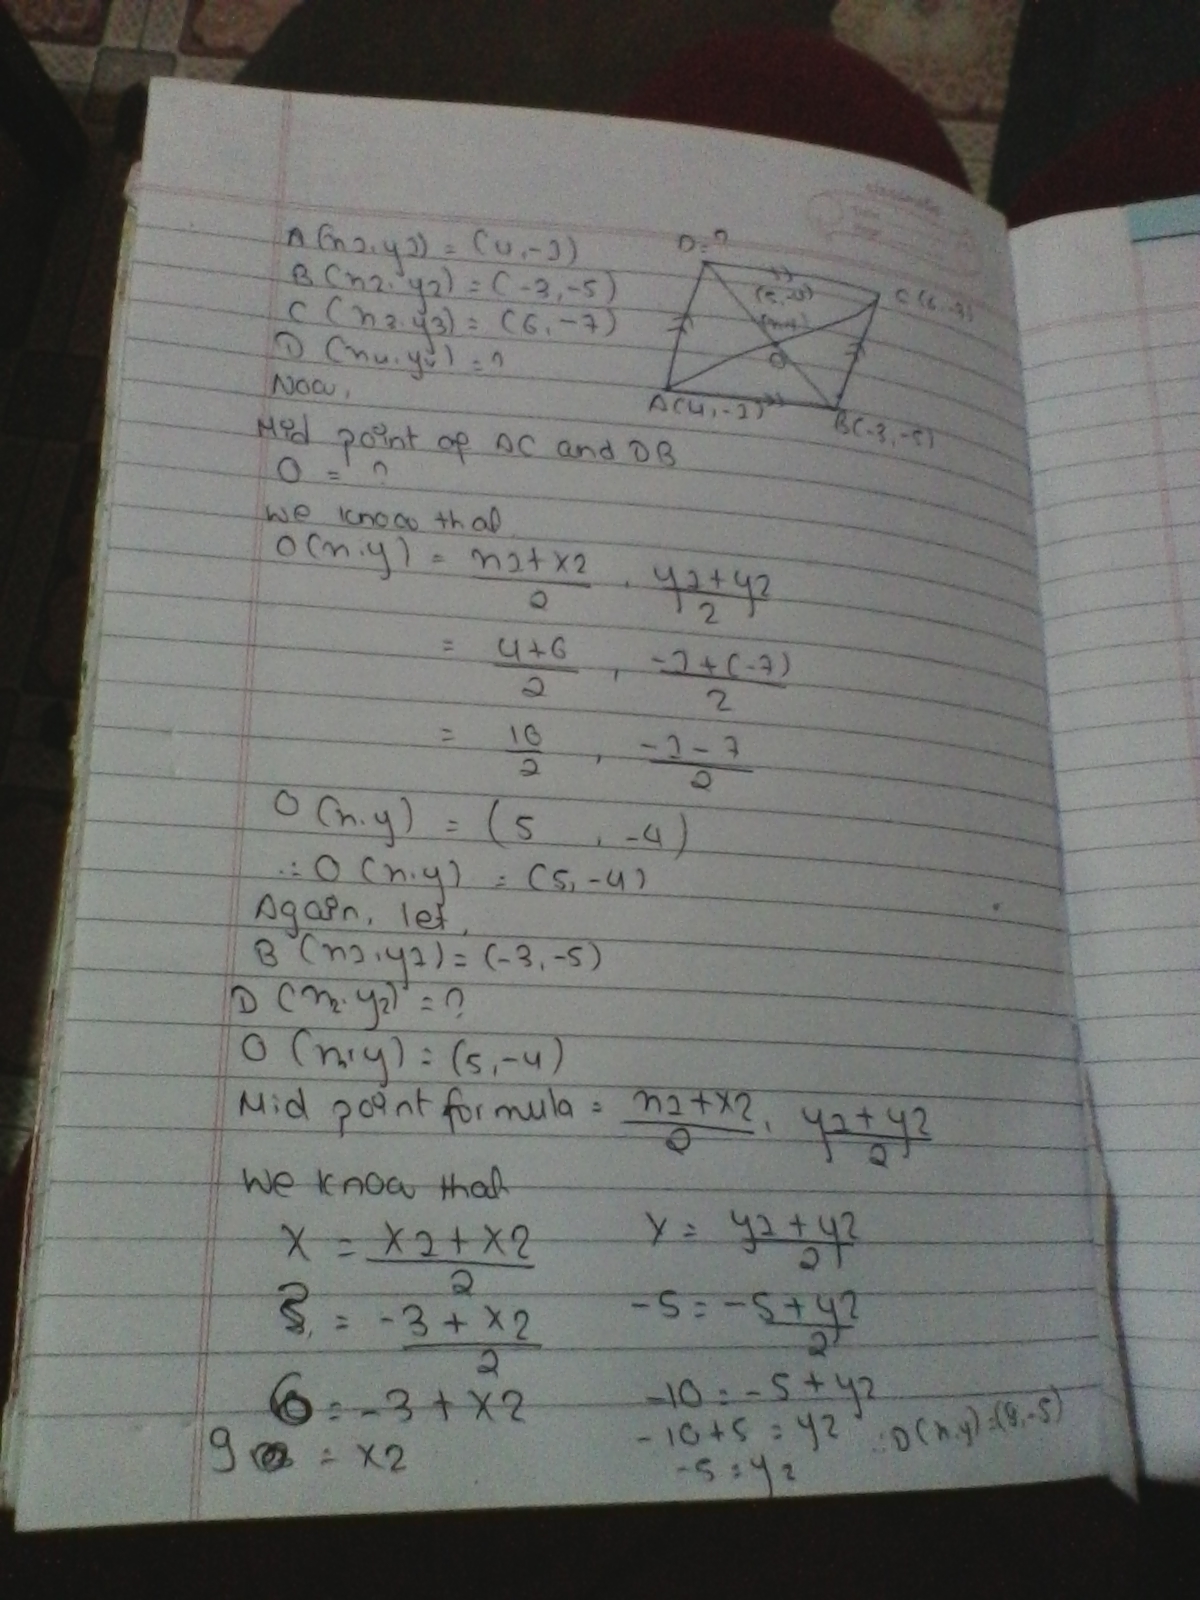 A(x1.y1) = (4,-1)
B(x2.y2) = (-3,-5)
C(x3.y3) = (6,-7)
D(x4.y4) = ?
D=?
C(6,-7)
O
A(4,-1)
B(-3,-5)
Now,
Mid point of AC and DB
O = ?
We know that
O(x.y) = x1+x2/2 , y1+y2/2
= 4+6/2 , -1+(-7)/2
= 10/2 , -1-7/2
O(x.y) = (5 , -4)
∴ O(x.y) = (5,-4)
Again, let,
B(x1.y1) = (-3,-5)
D(x2.y2) = ?
O(x.y) = (5,-4)
Mid point formula = x1+x2/2 , y1+y2/2
We know that
x = x1+x2/2 y = y1+y2/2
= -3+x2/2 -5 = -5+y2/2
6 = -3+x2 -10 = -5+y2
9 = x2 -10+5 = y2
-5 = y2
∴ D(x.y) = (9,-5)